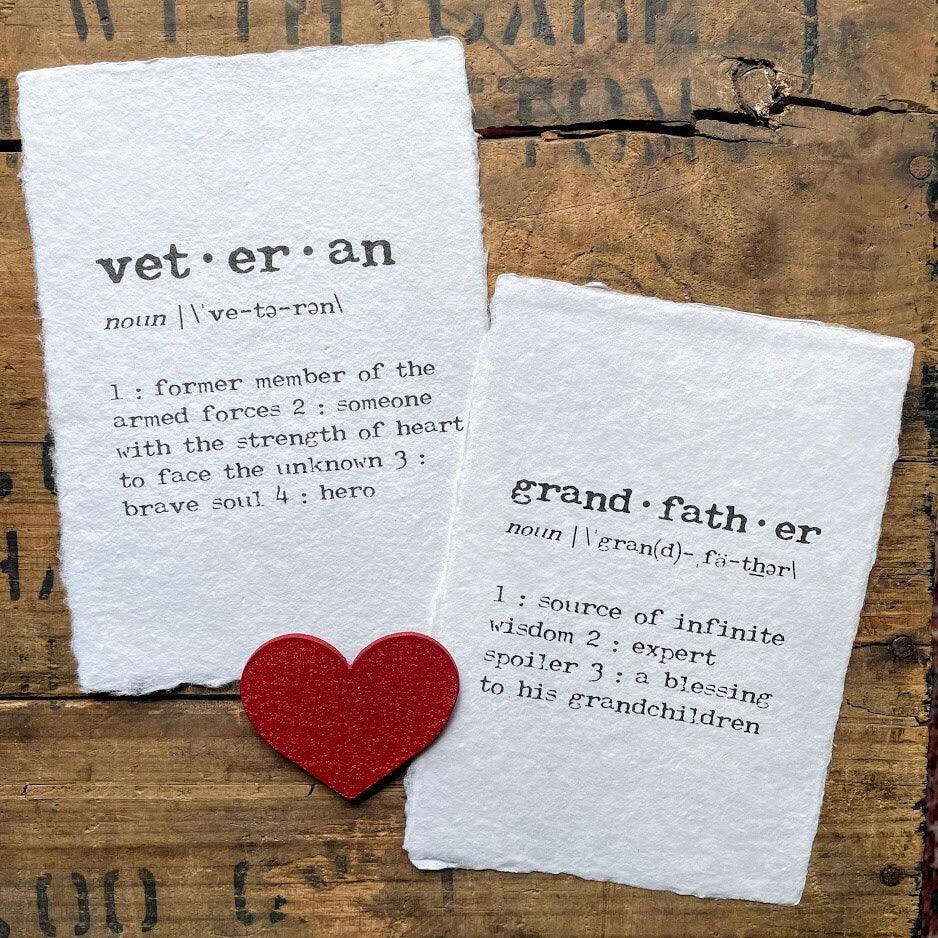 WITH CARE
vet·er·an
noun |\ˈve-tə-rən\
1 : former member of the
armed forces 2 : someone
with the strength of heart
to face the unknown 3 :
brave soul 4 : hero
grand·fath·er
noun |\ˈgran(d)-ˌfä-t͟hər\
1 : source of infinite
wisdom 2 : expert
spoiler 3 : a blessing
to his grandchildren